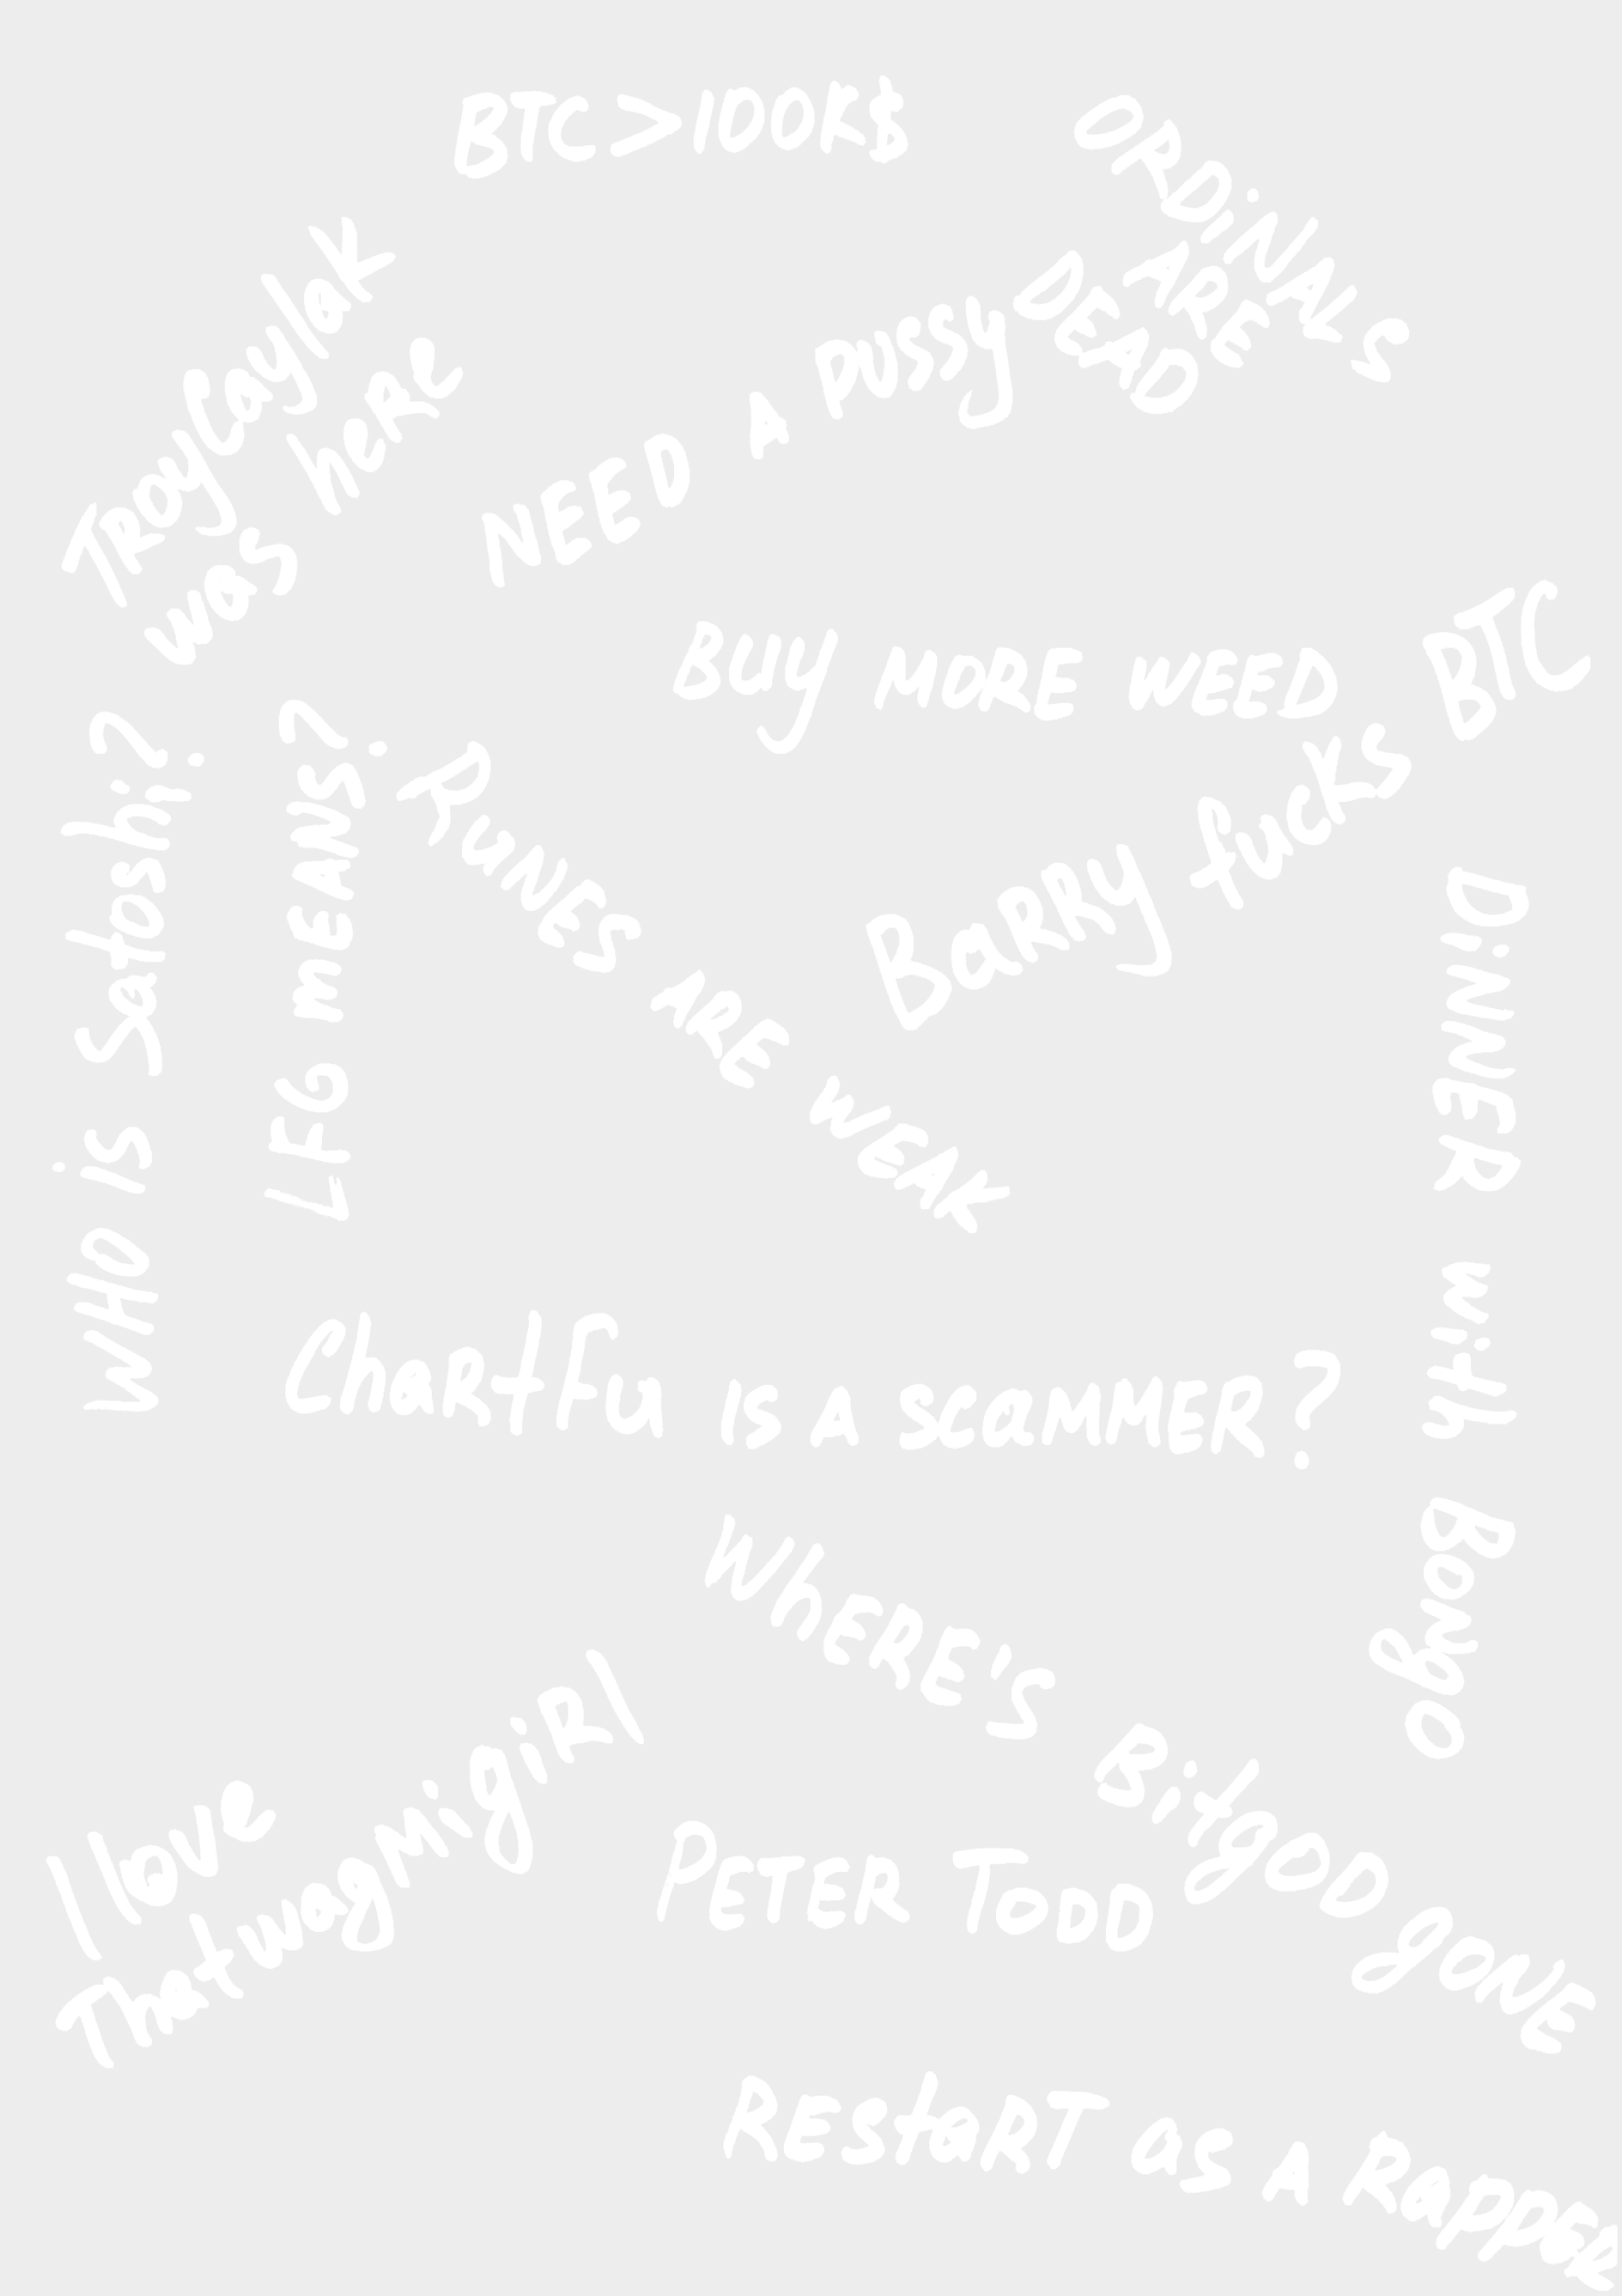 BTC > 100K$
ORDiNAls
ARE
DEAD
Troylak
was here
NEED A pussy
Buy MORE WEED
BTC
Who is Satoshi?
LFG mEANS?
RUNES ARE WEAK
Barry fucks
D.iMMER
Chartfu is A scaMMER?
Where's Bitgod gONE
I love
Thatwagmigirl
PETER TODD
RESTART as A Rapper